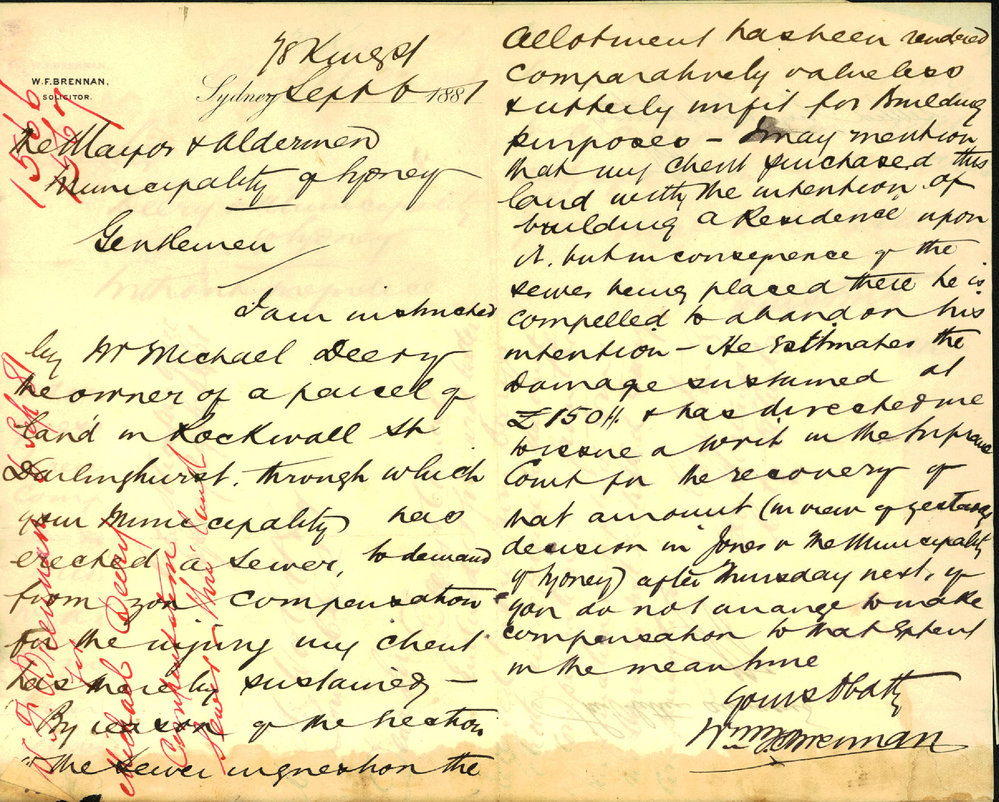 W. F. BRENNAN,
SOLICITOR.
78 King St
Sydney Sept 6 1881
The Mayor & Aldermen
Municipality of Sydney
Gentlemen
I am instructed
by Mr Michael Deery
the owner of a parcel of
land in Rockwall St
Darlinghurst. through which
your Municipality has
erected a sewer, to demand
from you compensation
for the injury my client
has thereby sustained –
By reason of the erection
of the sewer in question the
allotment has been rendered
comparatively valueless
& utterly unfit for Building
purposes – I may mention
that my client purchased this
land with the intention of
building a Residence upon
it. but in consequence of the
sewer being placed there he is
compelled to abandon his
intention – He Estimates the
Damage sustained at
£150 & has directed me
to issue a writ in the Supreme
Court for the recovery of
that amount (in view of yesterday's
decision in Jones v The Municipality
of Sydney) after Thursday next, if
you do not arrange to make
compensation to that Extent
in the meantime
Yours Obdtly
Wm F Brennan
1556
1567
W. F. Brennan 6 Sept 81
for
Michael Deery
Compensation
Sewer thro' land